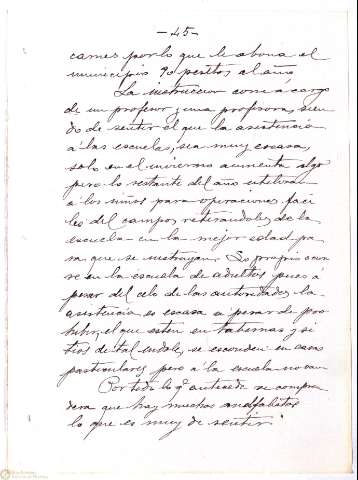 -45-
carnes por lo que le abona el
municipio 90 pesetas al año,
La instruccion corre á cargo
de un profesor y una profesora, sien
do de sentir el que la asistencia
á las escuelas, sea muy escasa,
solo en el invierno aumenta algo
pero lo restante del año utilizan
á los niños para operaciones fáci
les del campo, retirandoles de la
escuela en la mejor edad pa
ra que se instruyan. Lo propio ocur
re en la escuela de adultos pues á
pesar del celo de las autoridades la
asistencia es escasa a pesar de pro
hibir, el que esten en tabernas y si
tios de tal indole, se esconden en casas
particulares pero a la escuela no van
Por todo lo q. antecede se compren
dera que hay muchos analfabetos
lo que es muy de sentir.